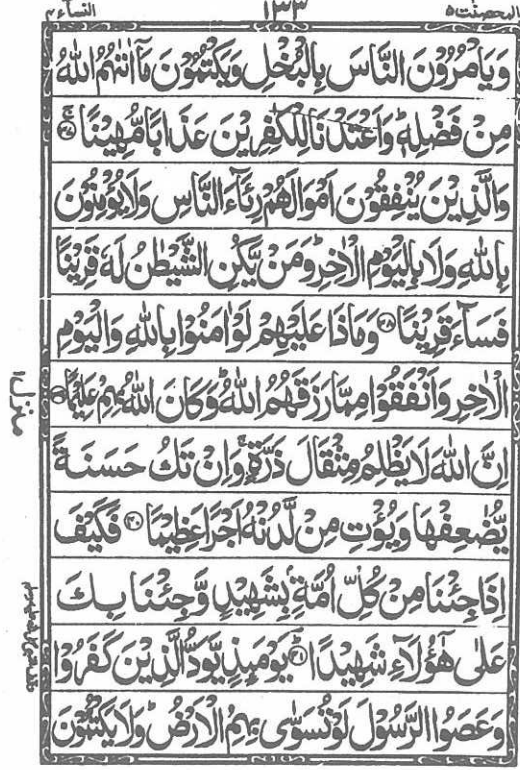 والمحصنٰت ۵ ۱۳۳ النسآء ۴
وَيَاْمُرُوْنَ النَّاسَ بِالْبُخْلِ وَيَكْتُمُوْنَ مَآ اٰتٰىهُمُ اللّٰهُ
مِنْ فَضْلِهٖ ؕ وَاَعْتَدْنَا لِلْكٰفِرِيْنَ عَذَابًا مُّهِيْنًا ۚ‏﴿۳۷﴾
وَالَّذِيْنَ يُنْفِقُوْنَ اَمْوَالَهُمْ رِئَآءَ النَّاسِ وَلَا يُؤْمِنُوْنَ
بِاللّٰهِ وَلَا بِالْيَوْمِ الْاٰخِرِ ؕ وَمَنْ يَّكُنِ الشَّيْطٰنُ لَهٗ قَرِيْنًا
فَسَآءَ قَرِيْنًا ﴿۳۸﴾ وَمَاذَا عَلَيْهِمْ لَوْ اٰمَنُوْا بِاللّٰهِ وَالْيَوْمِ
الْاٰخِرِ وَاَنْفَقُوْا مِمَّا رَزَقَهُمُ اللّٰهُ ؕ وَكَانَ اللّٰهُ بِهِمْ عَلِيْمًا ﴿۳۹﴾
اِنَّ اللّٰهَ لَا يَظْلِمُ مِثْقَالَ ذَرَّةٍ ۚ وَاِنْ تَكُ حَسَنَةً
يُّضٰعِفْهَا وَيُؤْتِ مِنْ لَّدُنْهُ اَجْرًا عَظِيْمًا ﴿۴۰﴾ فَكَيْفَ
اِذَا جِئْنَا مِنْ كُلِّ اُمَّةٍۭ بِشَهِيْدٍ وَّجِئْنَا بِكَ
عَلٰى هٰٓؤُلَآءِ شَهِيْدًا ؕ ﴿۴۱﴾ يَوْمَئِذٍ يَّوَدُّ الَّذِيْنَ كَفَرُوْا
وَعَصَوُا الرَّسُوْلَ لَوْ تُسَوّٰى بِهِمُ الْاَرْضُ ؕ وَلَا يَكْتُمُوْنَ
منزل ۱